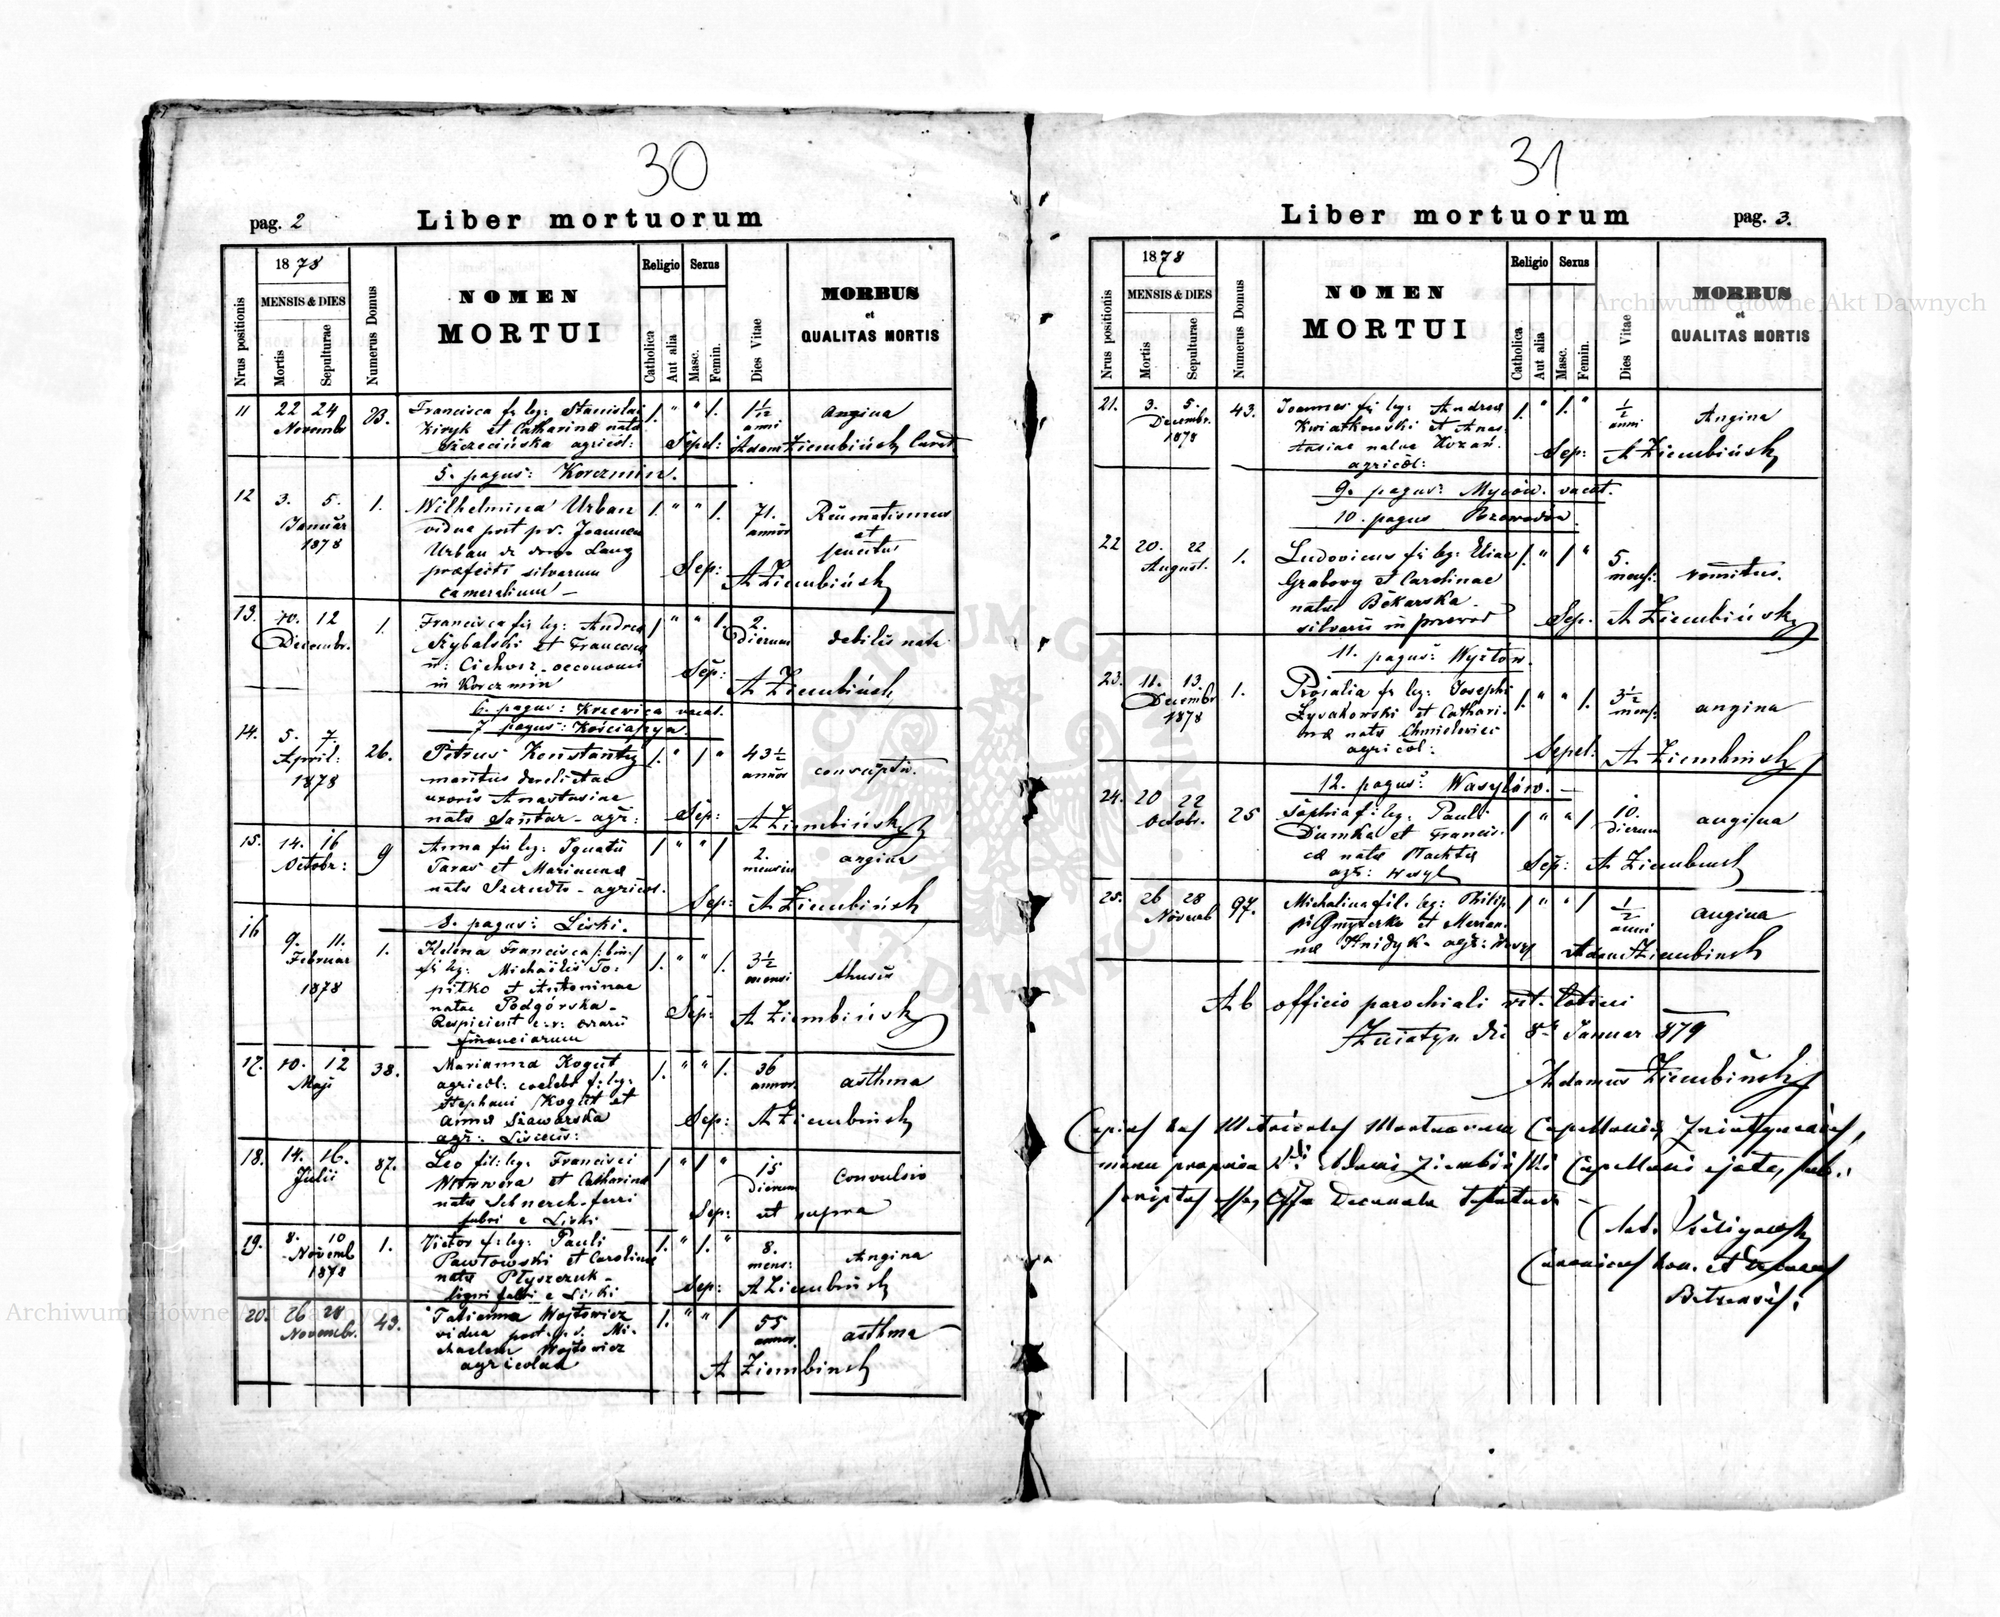 30
pag. 2
Liber mortuorum
Nrus positionis
1878
MENSIS & DIES
Mortis
Sepulturae
Numerus Domus
NOMEN
MORTUI
Religio
Sexus
Catholica
Aut alia
Masc.
Femin.
Dies Vitae
MORBUS
et
QUALITAS MORTIS
11 22 24 Novembr
Francisca fi: leg: Stanislai
Kiryk et Catharinæ nata
Szczecińska agricol:
1. " " 1.
anni
angina
Sepel: Adam Ziembińsk
5. pagus: Korczmin.
12 3. 5. Januar 1878 1.
Wilhelmina Urban
vidua post p.d. Joannem
Urban de domo Lang
præfecti silvarum
cameralium –
1. " " 1.
71. annor
Reumatismus
et
Sep: A Ziembińsk
13. 10. 12 Decembr. 1.
Francisca fi: leg: Andrea
Szybalski et Francisca
n: Cichorz. oeconomi
in Korczmin
1 " " 1.
2. Dierum
debilis nata
Sep: A Ziembińsk
6. pagus: Krzewica vacat.
7 pagus: Kościaszyn.
14. 5. 7. April: 1878 26.
Petrus Konstanty
maritus derelictae
uxoris Anastasiae
nata Santar – agr:
1. " 1 "
43½ annor
Sep: A Ziembińsk
15. 14. 16 Octobr: 9
Anna fii leg: Ignatii
Taras et Marianna
nata – agricol.
1 " " 1
2. mensiu
angina
Sep: A Ziembińsk
8. pagus: Liski.
16 9. 11. Februar 1878 1.
Helena Francisca /: bin:/
fi leg: Michaëlis To:
pitko et Antoninae
natae Podgórska –
Respicient
financiarum
1. " " 1.
3½ mensi
thusis
Sep: A Ziembińsk
17. 10. 12 Maji 38.
Marianna Kogut
agricol: coelebs f: leg:
Stephani Kogut et
Anna Szawarska
agr: Liscens:
1. " " 1.
36 annor.
asthma
Sep: A Ziembińsk
18. 14. 16. Julii 87.
Leo fil: leg: Francisci
et Catharina
nata Schnerch. ferri
fabri e Liski
1 " 1 "
15 Dierum
Convulsio
Sep: ut supra
19. 8. 10 Novemb 1878 1.
Victor f: leg: Pauli
Pawłowski et Carolina
nata Płyszczuk –
ligni fabri e Liski
1. " 1. "
8. mens:
Angina
Sep: A Ziembińsk
20. 26 28 Novembr. 43.
Tatianna Wojtowicz
vidua post p.d. Mi-
chaelem Wojtowicz
agricolam
1. " " 1
55 annor.
asthma
A Ziembińsk
31
Liber mortuorum
pag. 3.
Nrus positionis
1878
MENSIS & DIES
Mortis
Sepulturae
Numerus Domus
NOMEN
MORTUI
Religio
Sexus
Catholica
Aut alia
Masc.
Femin.
Dies Vitae
MORBUS
et
QUALITAS MORTIS
21. 3. 5. Decembr. 1878 43.
Joannes fi: leg: Andrea
Kwiatkowski et Anas:
tasiae natae Kozań.
agricol:
1. " 1. "
½ anni
Angina
Sep: A Ziembińsk
9. pagus: Myców. vacat.
10. pagus Przewodów.
22 20. 22 August. 1.
Ludovicus fi: leg: Eliae
Grabowy et Carolinae
natae Bekarska.
silvarii in przewod
1. " 1 "
5. mens:
vomitus.
Sep. A Ziembińsk
11. pagus: Wyżłów.
23. 11. 13. Decembr 1878 1.
Rosalia fi leg: Josephi
Łysakowski et Cathari-
næ nata Chmielowiec
agricol:
1. " " 1.
3½ mens:
angina
Sepel: A Ziembińsk
12. pagus: Wasylów. –
24. 20 22 Octobr. 25
Sophia f: leg: Pauli
Dumka et Francis:
cæ nata Płachta
agr: Wasyl
1 " " 1
10. Dierum
angina
Sep: A Ziembińsk
25. 26 28 Novemb 97.
Michalina fil. leg: Philip-
pi Gmyterko et Marian-
næ Hnidyk – agr:
1 " " 1
½ anni
angina
Adam Ziembińsk
Ab officio parochiali rit. latini
Żniatyn die 8 Januar 879
Adamus Ziembińsk
Copias has Metricales Mortuorum Capellaniæ Żniatynensis,
manu propria Adami Ziembiński Capellani
scriptas esse, Decanale testatur –
Canonicus hon. et Decanus
Belzensis.
Archiwum Główne Akt Dawnych
ARCHIWUM GŁÓWNE AKT DAWNYCH
Archiwum Główne Akt Dawnych